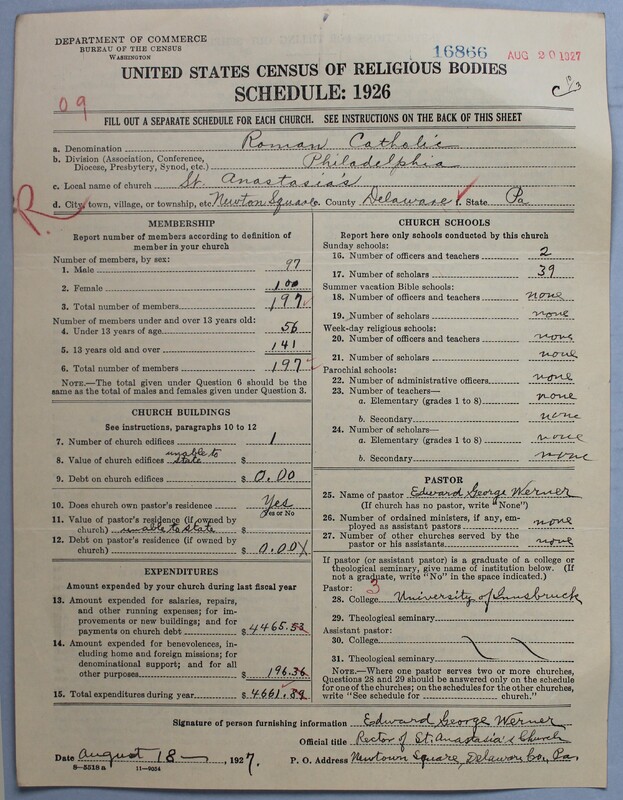 DEPARTMENT OF COMMERCE
BUREAU OF THE CENSUS
WASHINGTON
16866 AUG 20 1927
UNITED STATES CENSUS OF RELIGIOUS BODIES
SCHEDULE: 1926
09
FILL OUT A SEPARATE SCHEDULE FOR EACH CHURCH. SEE INSTRUCTIONS ON THE BACK OF THIS SHEET
a. Denomination Roman Catholic
b. Division (Association, Conference,
Diocese, Presbytery, Synod, etc.) Philadelphia
c. Local name of church St. Anastasia's
R.
d. City, town, village, or township, etc. Newton Square e. County Delaware f. State Pa
MEMBERSHIP
Report number of members according to definition of
member in your church
Number of members, by sex:
1. Male 97
2. Female 100
3. Total number of members 197
Number of members under and over 13 years old:
4. Under 13 years of age 56
5. 13 years old and over 141
6. Total number of members 197
NOTE.—The total given under Question 6 should be
the same as the total of males and females given under Question 3.
CHURCH BUILDINGS
See instructions, paragraphs 10 to 12
7. Number of church edifices 1
8. Value of church edifices unable to state $
9. Debt on church edifices $ 0.00
10. Does church own pastor's residence Yes
Yes or No
11. Value of pastor's residence (if owned by
church) unable to state $
12. Debt on pastor's residence (if owned by
church) $ 0.00
EXPENDITURES
Amount expended by your church during last fiscal year
13. Amount expended for salaries, repairs,
and other running expenses; for im-
provements or new buildings; and for
payments on church debt $ 4465.53
14. Amount expended for benevolences,
including home and foreign missions; for
denominational support; and for all
other purposes $ 196.36
15. Total expenditures during year $ 4661.89
CHURCH SCHOOLS
Report here only schools conducted by this church
Sunday schools:
16. Number of officers and teachers 2
17. Number of scholars 39
Summer vacation Bible schools:
18. Number of officers and teachers none
19. Number of scholars none
Week-day religious schools:
20. Number of officers and teachers none
21. Number of scholars none
Parochial schools:
22. Number of administrative officers none
23. Number of teachers—
a. Elementary (grades 1 to 8) none
b. Secondary none
24. Number of scholars—
a. Elementary (grades 1 to 8) none
b. Secondary none
PASTOR
25. Name of pastor Edward George Werner
(If church has no pastor, write "None")
26. Number of ordained ministers, if any, em-
ployed as assistant pastors none
27. Number of other churches served by the
pastor or his assistants none
If pastor (or assistant pastor) is a graduate of a college or
theological seminary, give name of institution below. (If
not a graduate, write "No" in the space indicated.)
Pastor: 3
28. College University of Innsbruck
29. Theological seminary
Assistant pastor:
30. College
31. Theological seminary
NOTE.—Where one pastor serves two or more churches,
Questions 28 and 29 should be answered only on the schedule
for one of the churches; on the schedules for the other churches,
write "See schedule for church."
Signature of person furnishing information Edward George Werner
Official title Rector of St. Anastasia's Church
Date August 18—, 1927. P. O. Address Newtown Square, Delaware Co., Pa.
8—5518a 11—9034